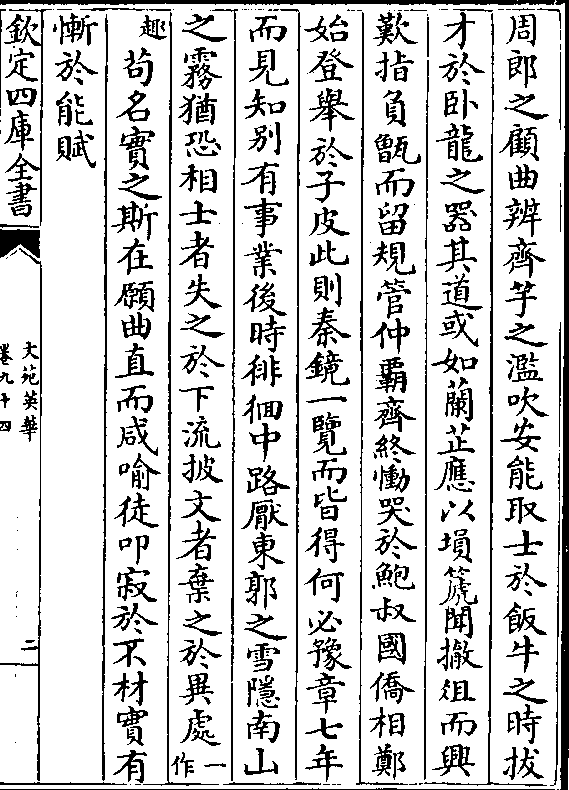 周郎之顧曲辨齊竽之濫吹安能取士於飯牛之時拔
才於卧龍之器其道或如蘭芷應以塤篪聞撤俎而興
歎指負甑而留規管仲霸齊終慟哭於鮑叔國僑相鄭
始登舉於子皮此則秦鏡一覽而皆得何必豫章七年
而見知别有事業後時徘徊中路厭東郭之雪隱南山
之霧猶恐相士者失之於下流披文者棄之於異處一作
趣苟名實之斯在願曲直而咸喻徒叩寂於不材實有
慚於能賦
欽定四庫全書
文苑英華
卷九十四
二